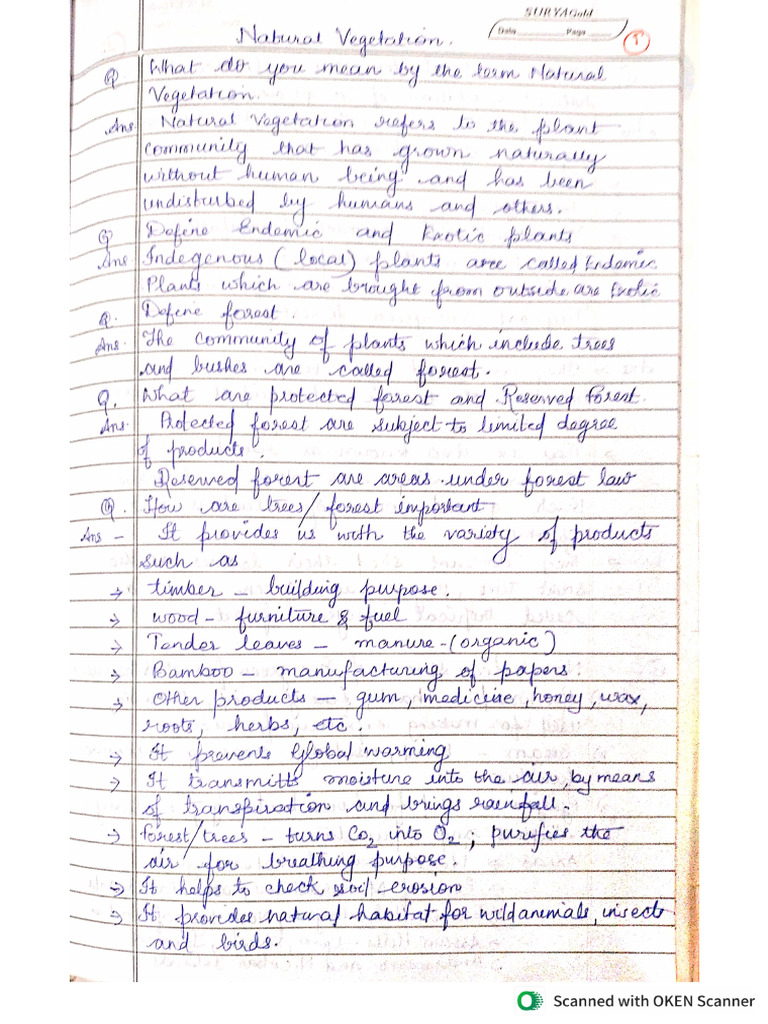 SURYA Gold
Date Page
1
Natural Vegetation.
Q What do you mean by the term Natural
Vegetation.
Ans Natural Vegetation refers to the plant
community that has grown naturally
without human being and has been
undisturbed by humans and others.
Q Define Endemic and Exotic plants
Ans Indegenous (local) plants are called Endemic
Plants which are brought from outside are Exotic
Q. Define forest.
Ans. The community of plants which include trees
and bushes are called forest.
Q. What are protected forest and Reserved Forest.
Ans. Protected forest are subject to limited degree
of products.
Reserved forest are areas under forest law
Q. How are trees/forest important
Ans - It provides us with the variety of products
such as
→ timber - building purpose.
→ wood - furniture & fuel
→ Tender leaves - manure - (organic)
→ Bamboo - manufacturing of papers.
→ Other products - gum, medicine, honey, wax,
roots, herbs, etc.
→ It prevents Global warming
→ It transmitts moisture into the air, by means
of transpiration and brings rainfall.
→ Forest/trees - turns CO2 into O2; purifies the
air for breathing purpose.
→ It helps to check soil erosion
→ It provides natural habitat for wild animals, insects
and birds.
Scanned with OKEN Scanner